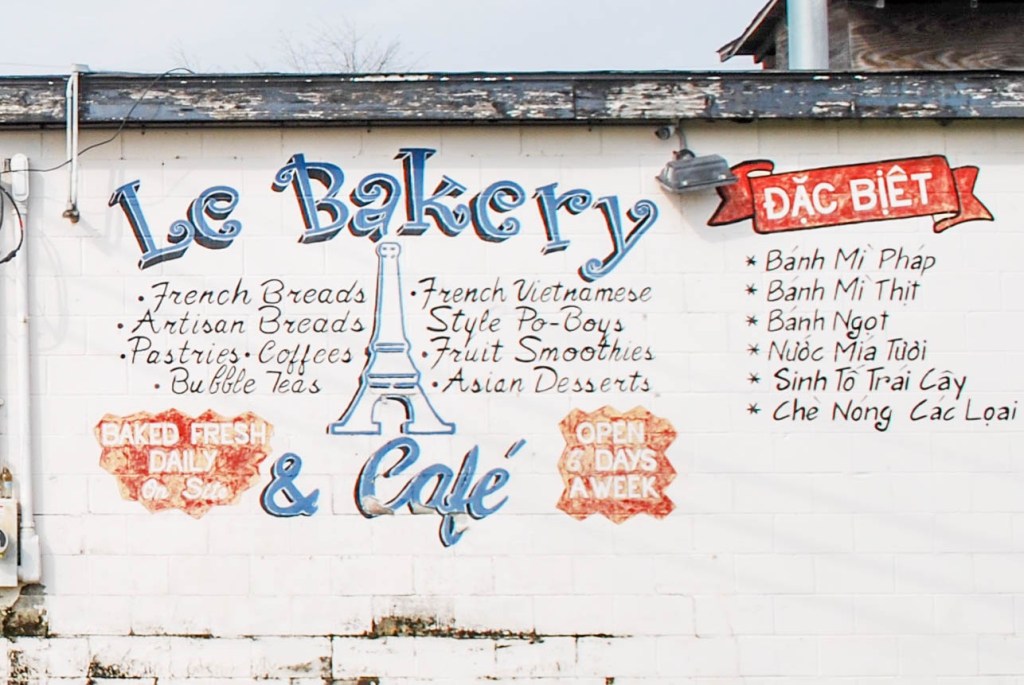 Le Bakery
• French Breads
• Artisan Breads
• Pastries • Coffees
• Bubble Teas
• French Vietnamese
Style Po-Boys
• Fruit Smoothies
• Asian Desserts
BAKED FRESH
DAILY
On Site
& Café
OPEN
6 DAYS
A WEEK
ĐẶC BIỆT
* Bánh Mì Pháp
* Bánh Mì Thịt
* Bánh Ngọt
* Nước Miá Tươi
* Sinh Tố Trái Cây
* Chè Nóng Các Loại